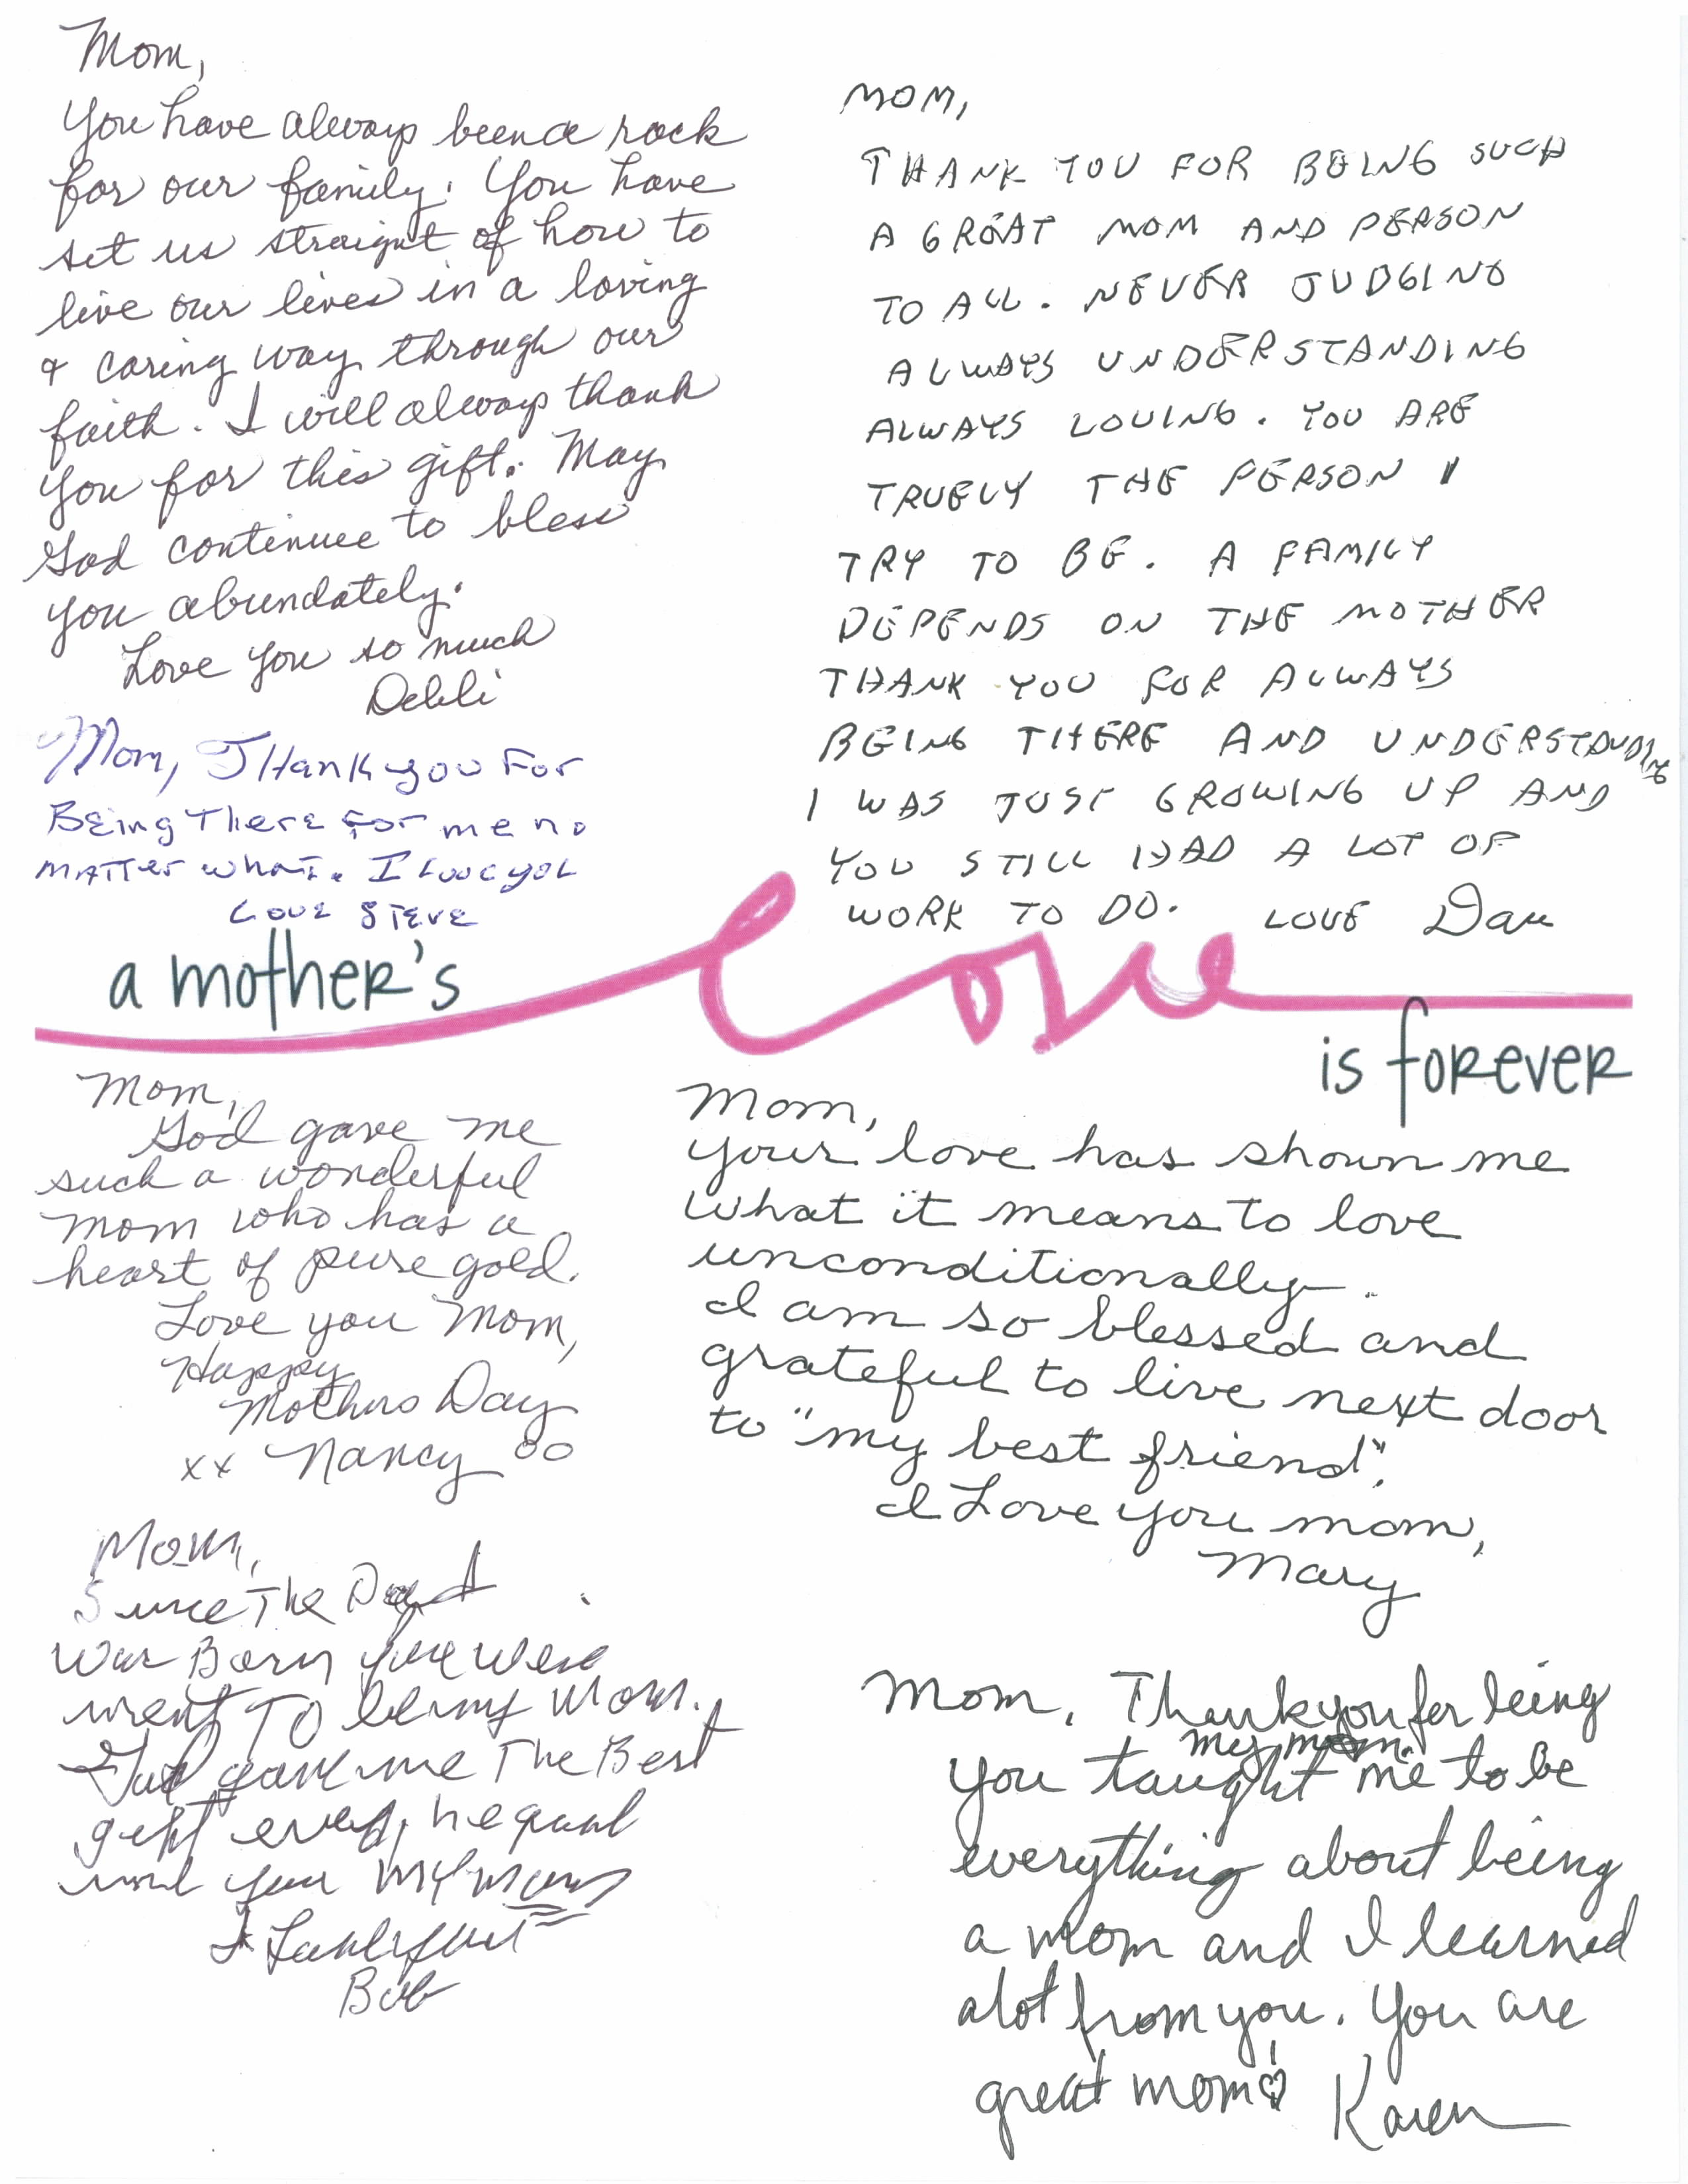 Mom,
You have always been a rock
for our family. You have
set us straight of how to
live our lives in a loving
& caring way through our
faith. I will always thank
you for this gift. May
God continue to bless
you abundately.
Love you so much
Debbi
Mom, Thank you For
Being There For me no
matter what. I Love you
Love Steve
MOM,
THANK YOU FOR BEING SUCH
A GREAT MOM AND PERSON
TO ALL. NEVER JUDGING
ALWAYS UNDERSTANDING
ALWAYS LOVING. YOU ARE
TRUELY THE PERSON I
TRY TO BE. A FAMILY
DEPENDS ON THE MOTHER
THANK YOU FOR ALWAYS
BEING THERE AND UNDERSTANDING
I WAS JUST GROWING UP AND
YOU STILL HAD A LOT OF
WORK TO DO. LOVE Dan
a mother's love
is forever
Mom,
God gave me
such a wonderful
mom who has a
heart of pure gold.
Love you Mom,
Happy
Mothers Day
xx Nancy oo
Mom,
your love has shown me
what it means to love
unconditionally.
I am so blessed and
grateful to live next door
to "my best friend".
I Love you mom,
Mary
Mom,
Since The Day I
was Born you were
ment To be my Mom.
God gave me The Best
gift ever, he gave
me you my mom
I
Bob
Mom, Thank you for being
my mom.
You taught me to be
everything about being
a mom and I learned
alot from you. You are
great mom!
Karen